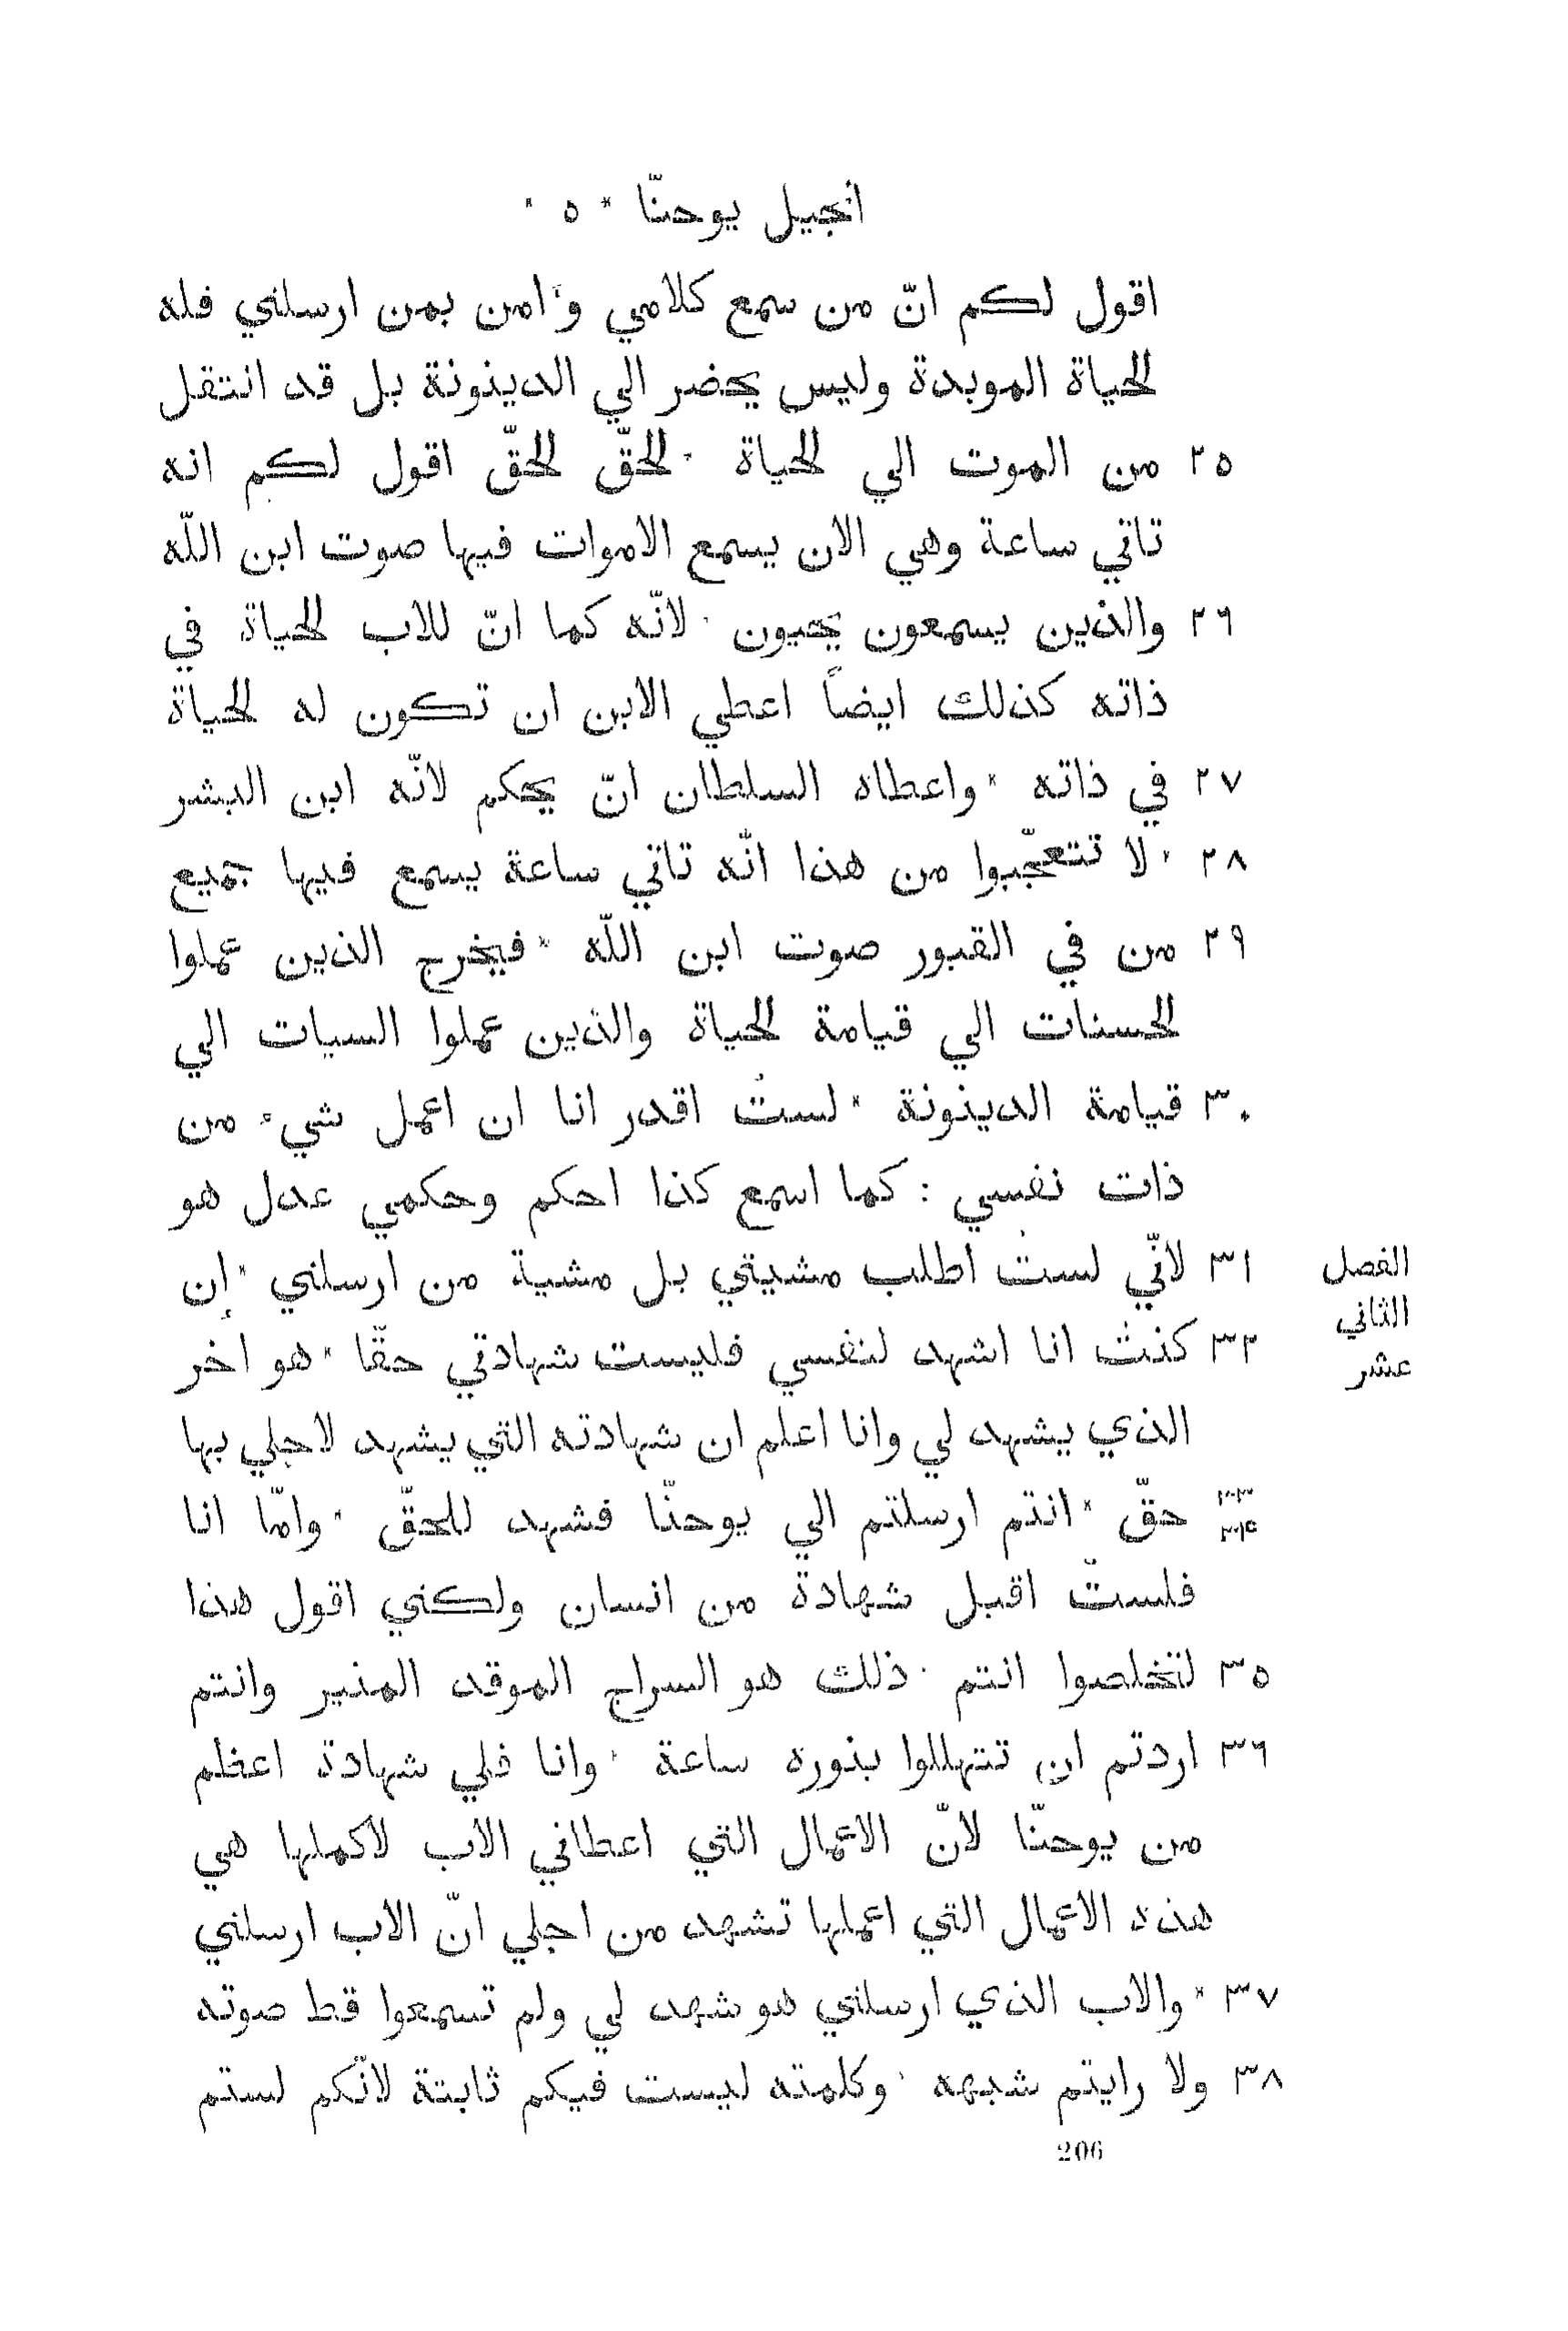 انجيل يوحنّا * ٥ *
اقول لكم انّ من سمع كلامي وَامن بمن ارسلني فله
الحياة الموبدة وليس يحضر الي الدينونة بل قد انتقل
٢٥ من الموت الي الحياة * الحقّ الحقّ اقول لكم انه
تاتي ساعة وهي الان يسمع الاموات فيها صوت ابن اللّه
٢٦ والذين يسمعون يحيون * لانّه كما انّ للاب الحياة في
ذاته كذلك ايضاً اعطي الابن ان تكون له الحياة
٢٧ في ذاته * واعطاه السلطان انّ يحكم لانّه ابن البشر
٢٨ * لا تتعجّبوا من هذا انّه تاتي ساعة يسمع فيها جميع
٢٩ من في القبور صوت ابن اللّه * فيخرج الذين عملوا
الحسنات الي قيامة الحياة والذين عملوا السيات الي
٣٠ قيامة الدينونة * لستُ اقدر انا ان اعمل شيء من
ذات نفسي : كما اسمع كذا احكم وحكمي عدل هو
٣١ لانّي لستُ اطلب مشيتي بل مشية من ارسلني * إن
٣٢ كنتُ انا اشهد لنفسي فليست شهادتي حقّا * هو اخر
الذي يشهد لي وانا اعلم ان شهادته التي يشهد لاجلي بها
٣٣ ٣٤ حقّ * انتم ارسلتم الي يوحنّا فشهد للحقّ * وامّا انا
فلستُ اقبل شهادة من انسان ولكني اقول هذا
٣٥ لتخلصوا انتم * ذلك هو السراج الموقد المنير وانتم
٣٦ اردتم ان تتهللوا بنوره ساعة * وانا فلي شهادة اعظم
من يوحنّا لانّ الاعمال التي اعطاني الاب لاكملها هي
هذه الاعمال التي اعملها تشهد من اجلي انّ الاب ارسلني
٣٧ * والاب الذي ارسلني هو شهد لي ولم تسمعوا قط صوته
٣٨ ولا رايتم شبهه * وكلمته ليست فيكم ثابتة لانّكم لستم
الفصل
الثاني
عشر
206